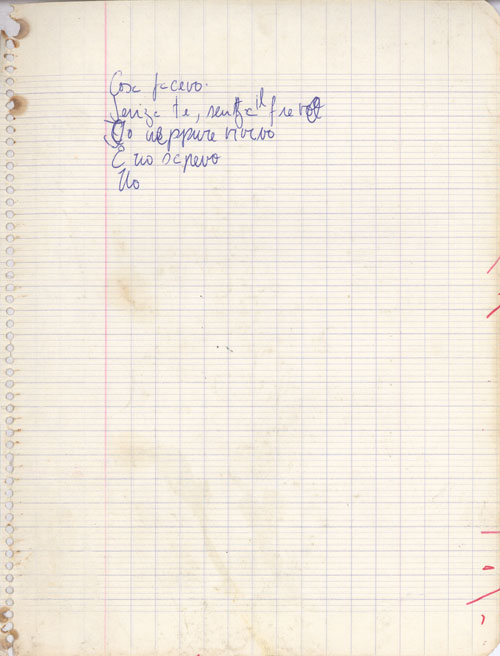 Cosa facevo.
Senza te, senza il
Io neppure vivevo
E no sapevo
No